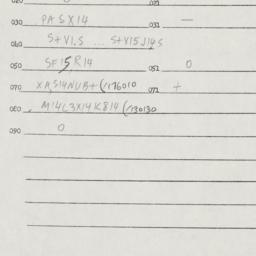 020 0 021
030 PA SX14 031 —
040 S+V1S ... S+V15J14S
050 SF15R14 051 0
070 XA,S14NUB+(1136010 071 +
080 M14L3X14K814(130130
090 0